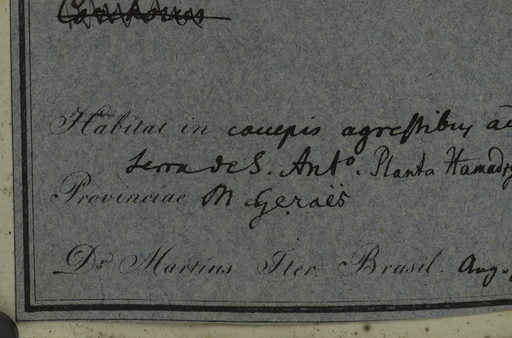 Habitat in campis agrestibus ad
Serra de S. Anto. Planta Hamadry
Provinciae M. Geraës
Dr. Martius Iter Brasil. Aug.